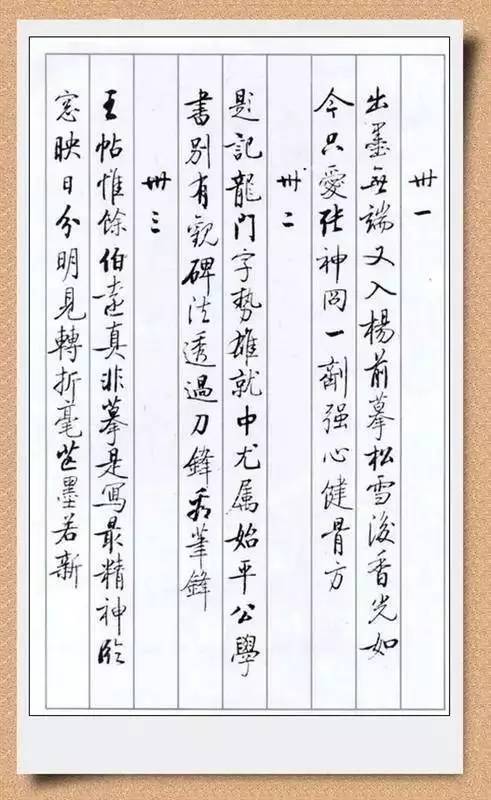 卅一
出墨無端又入楊前摹松雪後香光如
今只愛張神冏一劑强心健骨方
卅二
題記龍門字勢雄就中尤属始平公學
書别有觀碑法透過刀鋒看筆鋒
卅三
王帖惟餘伯遠真非摹是寫最精神臨
窓映日分明見轉折毫芒墨若新